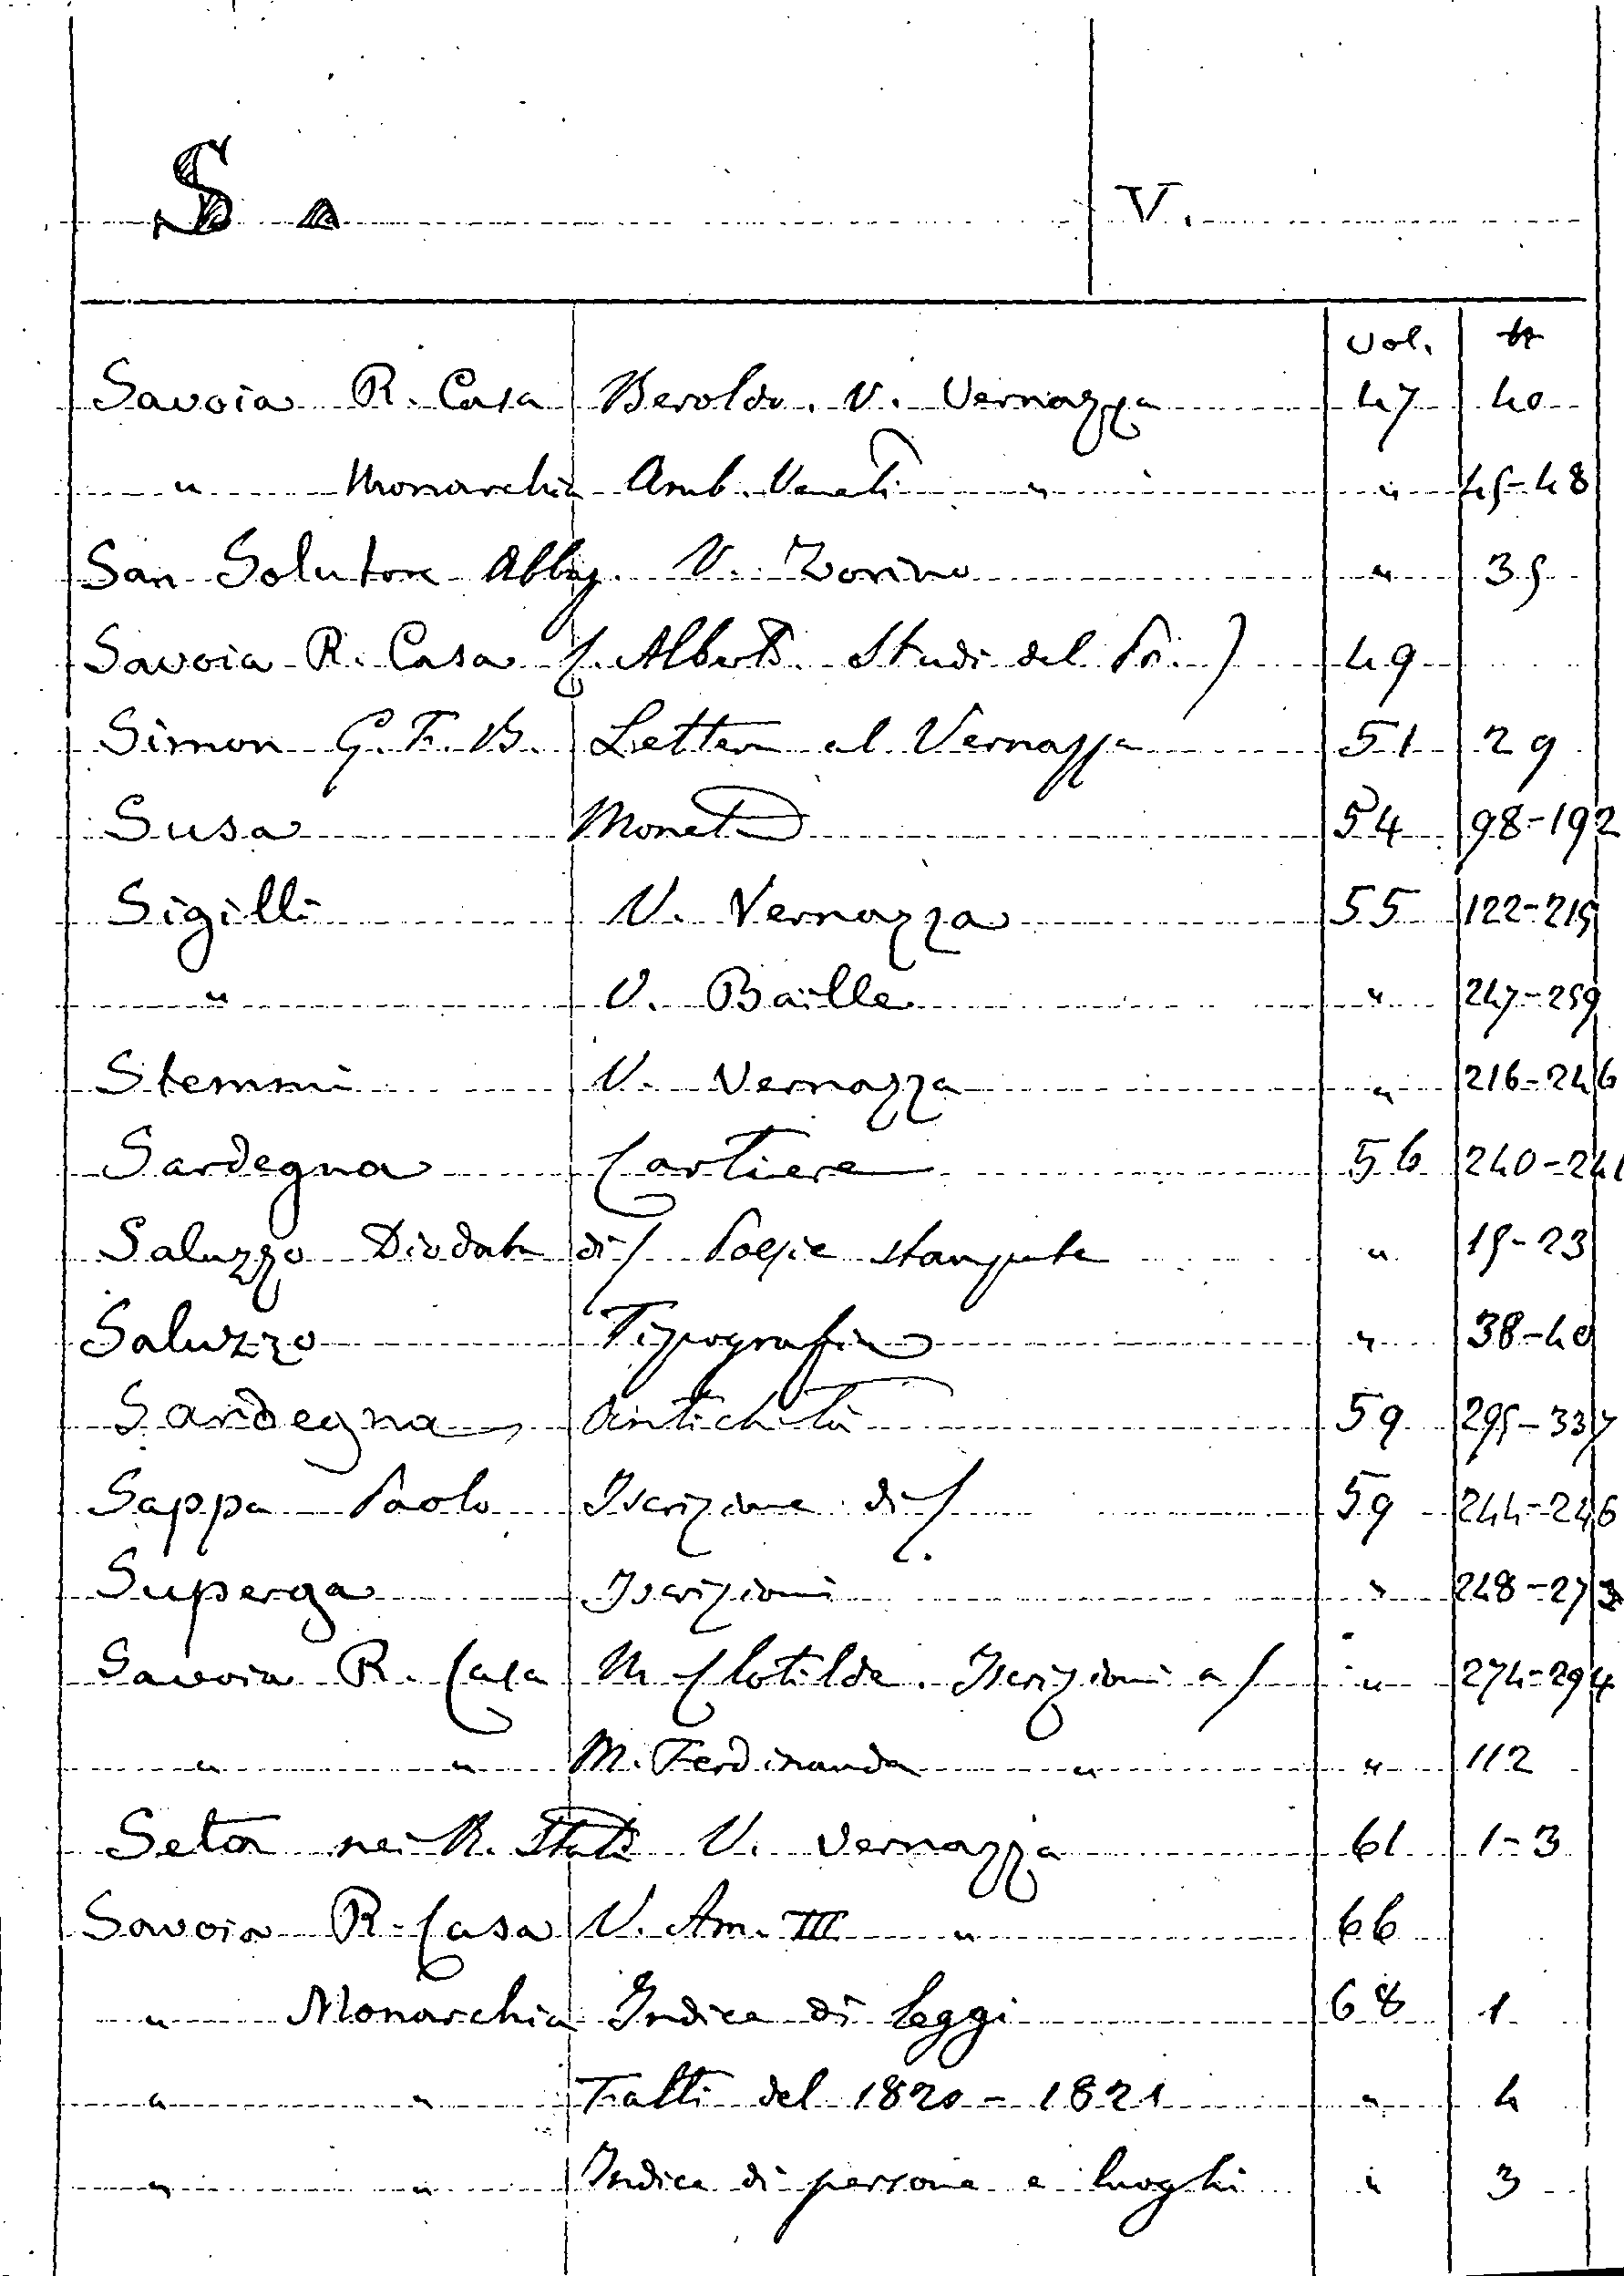 S. V.
vol. #
Savoia R. Casa Beroldo. V. Vernazza 47 40
" Monarchia Amb. Veneti " " 45-48
San Solutore Abbaz. V. Torino " 35
Savoia R. Casa C. Alberto. Studi del Pri.) 49
Simon G. F. B. Lettera al Vernazza 51 29
Susa Monete 54 98-192
Sigilli V. Vernazza 55 122-215
" V. Baille " 247-259
Stemmi V. Vernazza " 216-246
Sardegna Cartiere 56 240-241
Saluzzo Diodata di/ Poesie stampate " 15-23
Saluzzo Tipografia " 38-40
Sardegna Antichità 59 295-337
Sappa Paolo Iscrizione di/ 59 244-246
Superga Iscrizioni " 248-273
Savoia R. Casa M. Clotilde. Iscrizioni a/ " 274-294
" " M. Ferdinanda " " 112
Seta nei R. Stati V. Vernazza 61 1-3
Savoia R. Casa V. Am. III " 66
" Monarchia Indice di leggi 68 1
" " Fatti del 1820-1821 " 4
" " Indice di persone e luoghi " 3